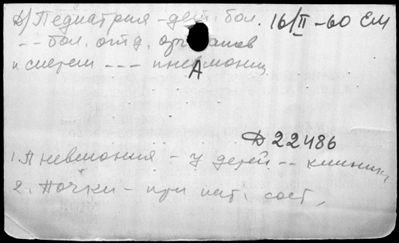 Д) Педиатрия - дет. бол. 16/II-60 ЕМ
-- бол. отд. органов
и систем --- пневмония
А
Д 22486
1. Пневмония - у детей -- клиника
2. Почки - при пат. сост.